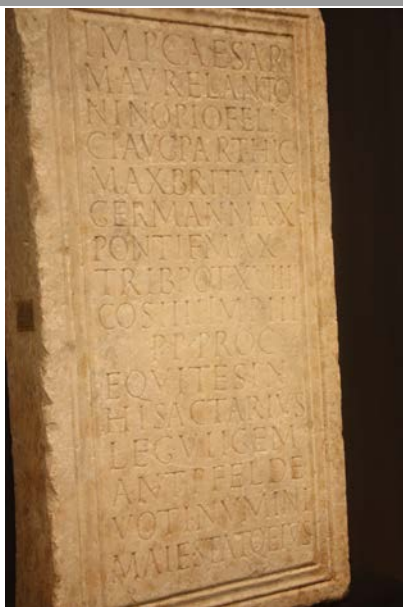 IMPCAESARI
MAVRELANTO
NINOPIOFELI
CIAVGPARTHIC
MAXBRITMAX
GERMANMAX
PONTIFMAX
TRIBPOTXVIII
COSIIIIIMPIII
PPPROC
EQVITESIN
HISACTARIVS
LEGVIIGEM
ANTPFELDE
VOTINVMINI
MAIESTATQEIVS